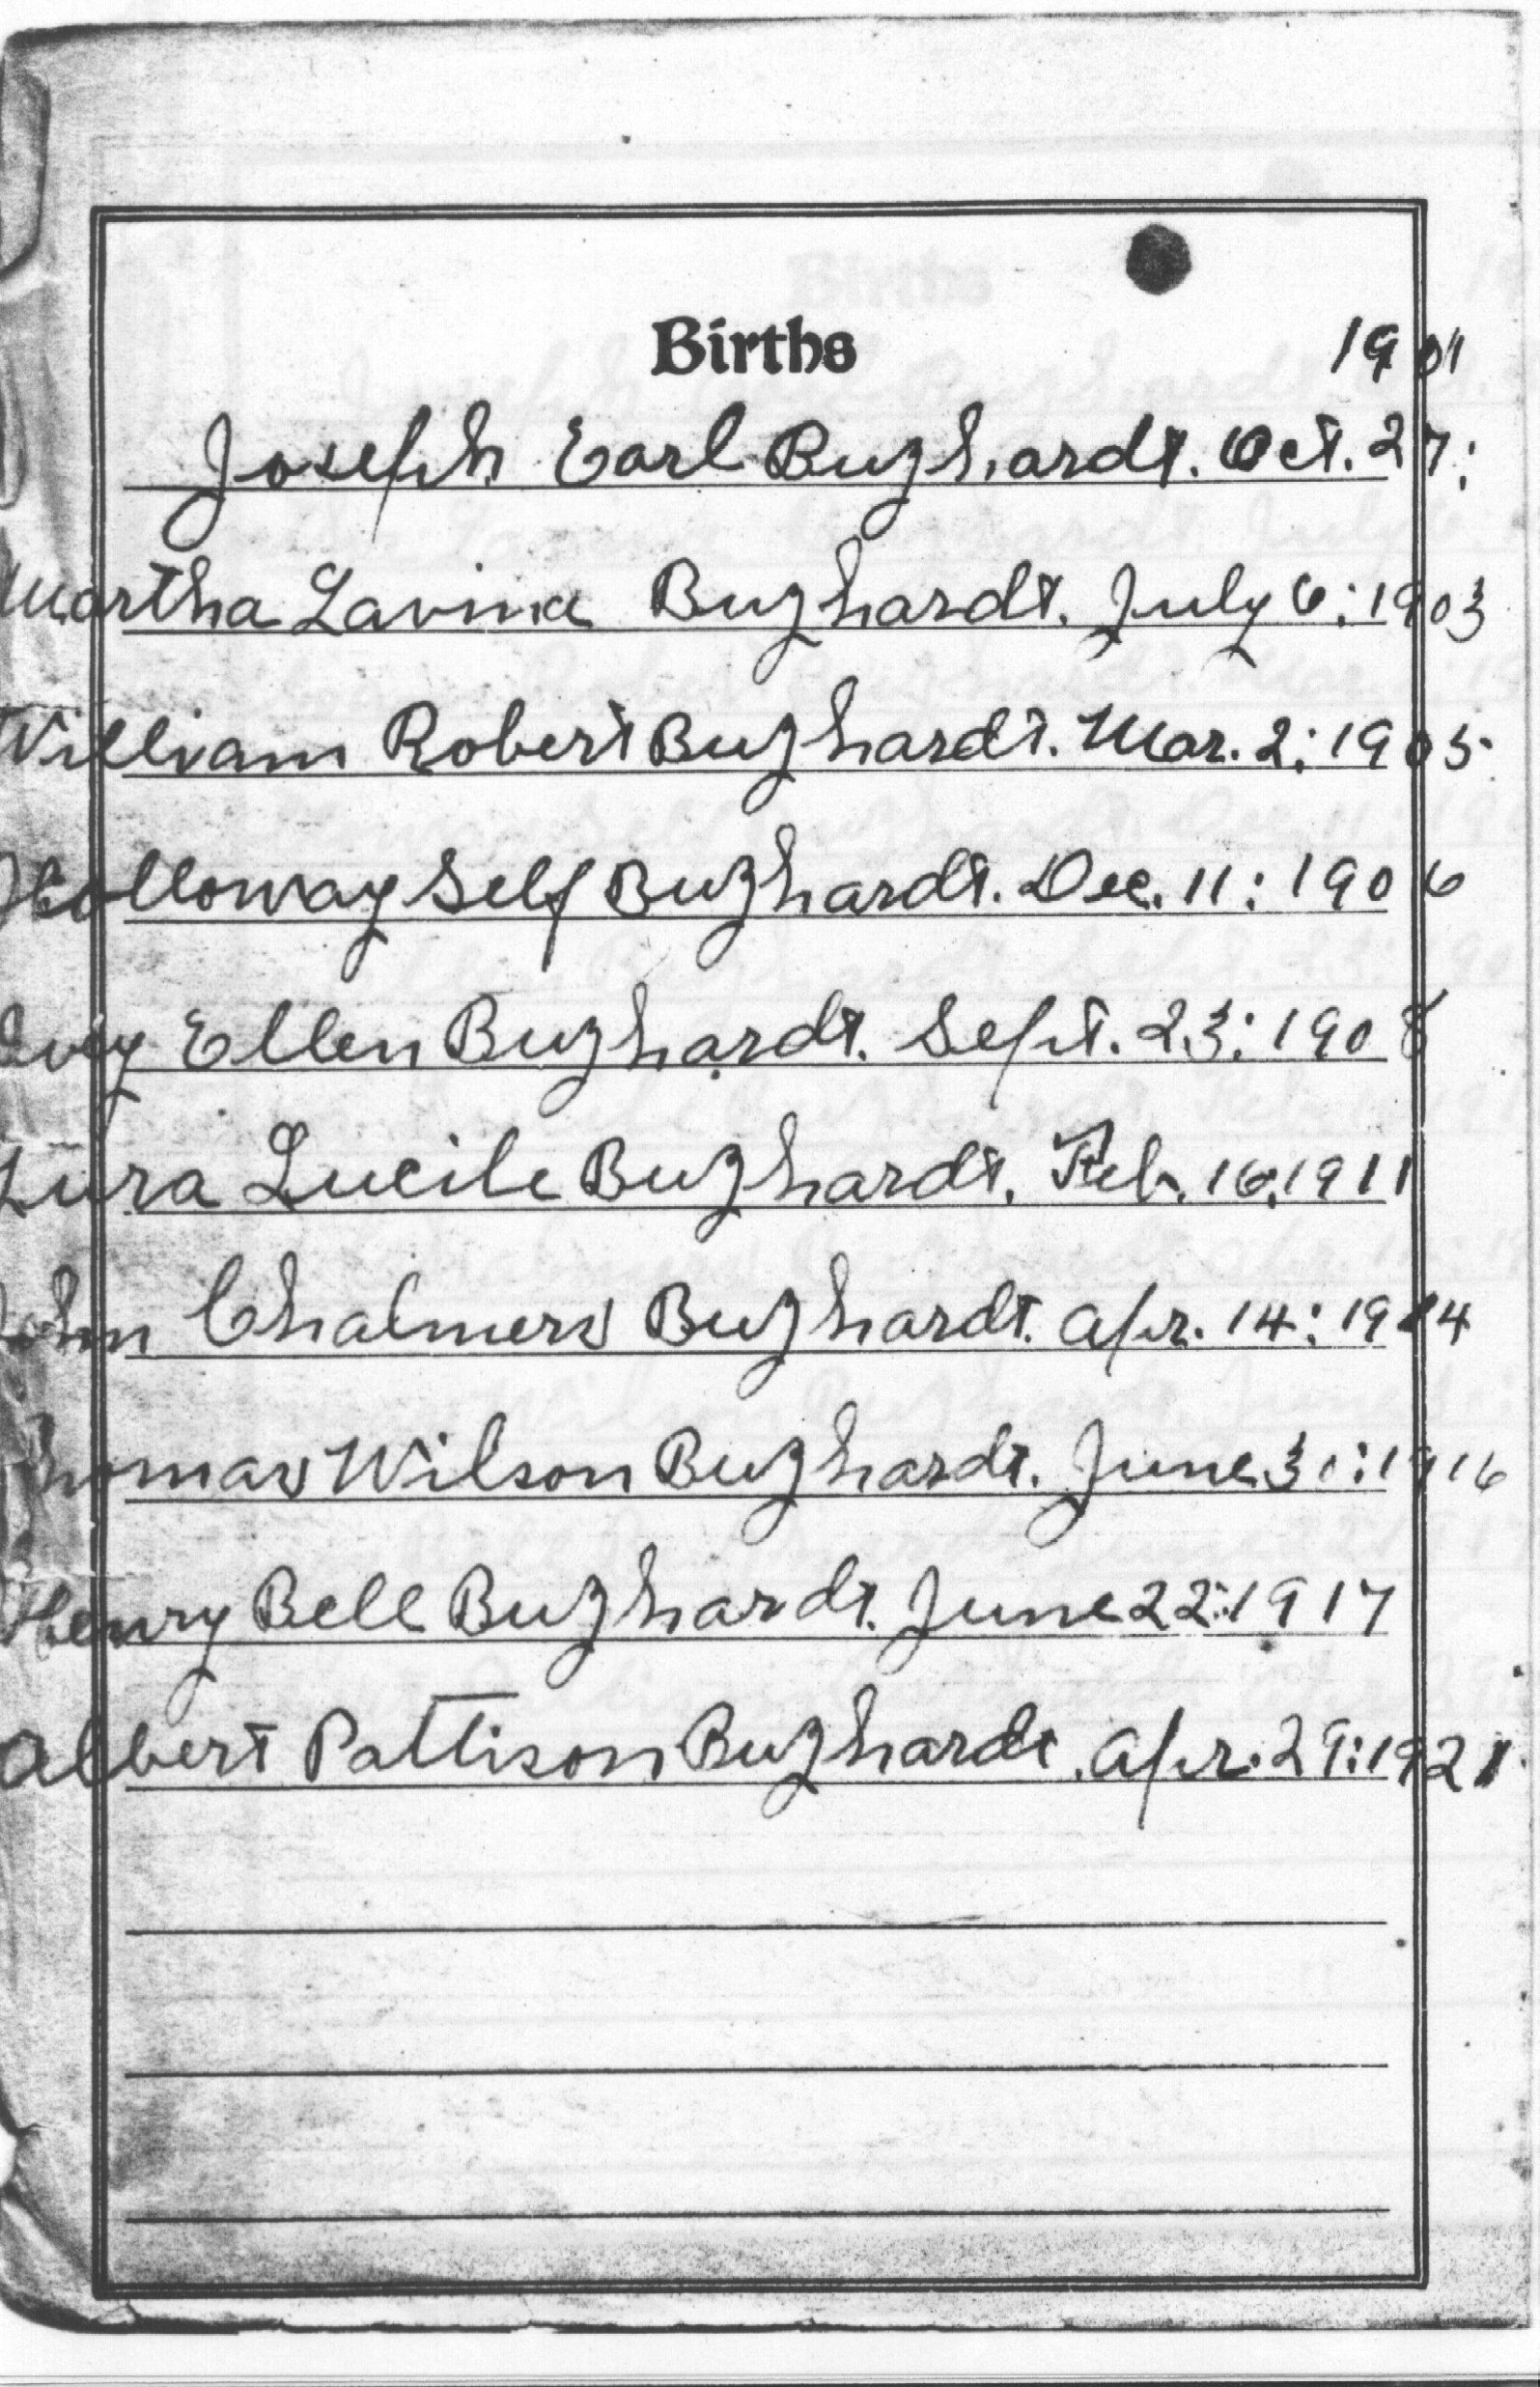 Births
1901
Joseph Earl Buzhardt. Oct. 27;
Martha Lavina Buzhardt. July 6; 1903
William Robert Buzhardt. Mar. 2; 1905
Holloway Self Buzhardt. Dec. 11: 1906
Ivey Ellen Buzhardt. Sept. 23: 1908
Lura Lucile Buzhardt. Feb. 16, 1911
John Chalmers Buzhardt. Apr. 14: 1914
Thomas Wilson Buzhardt. June 30: 1916
Henry Bell Buzhardt. June 22: 1917
Albert Pattison Buzhardt. Apr. 29: 1921